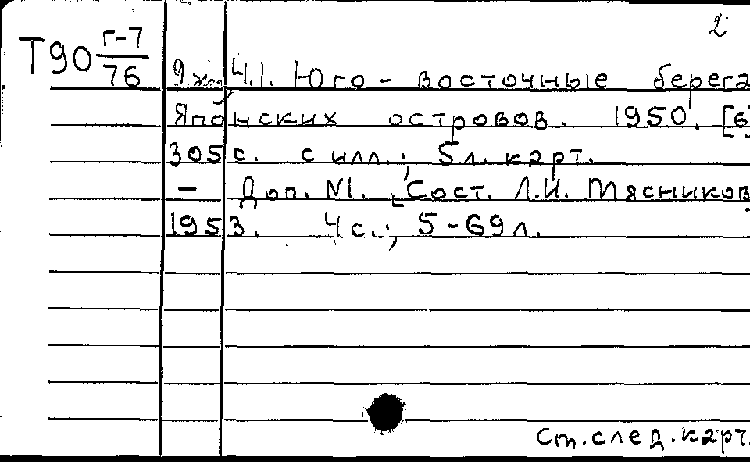 2
Т90 Г-7/76
9 экз Ч.1. Юго-восточные берега
Японских островов. 1950. [6]
305 с. с илл.; 5 л. карт.
— Доп. N1. [Сост. Л.И. Мясников
1953. 4 с.; 5-69 л.
См. след. карт.